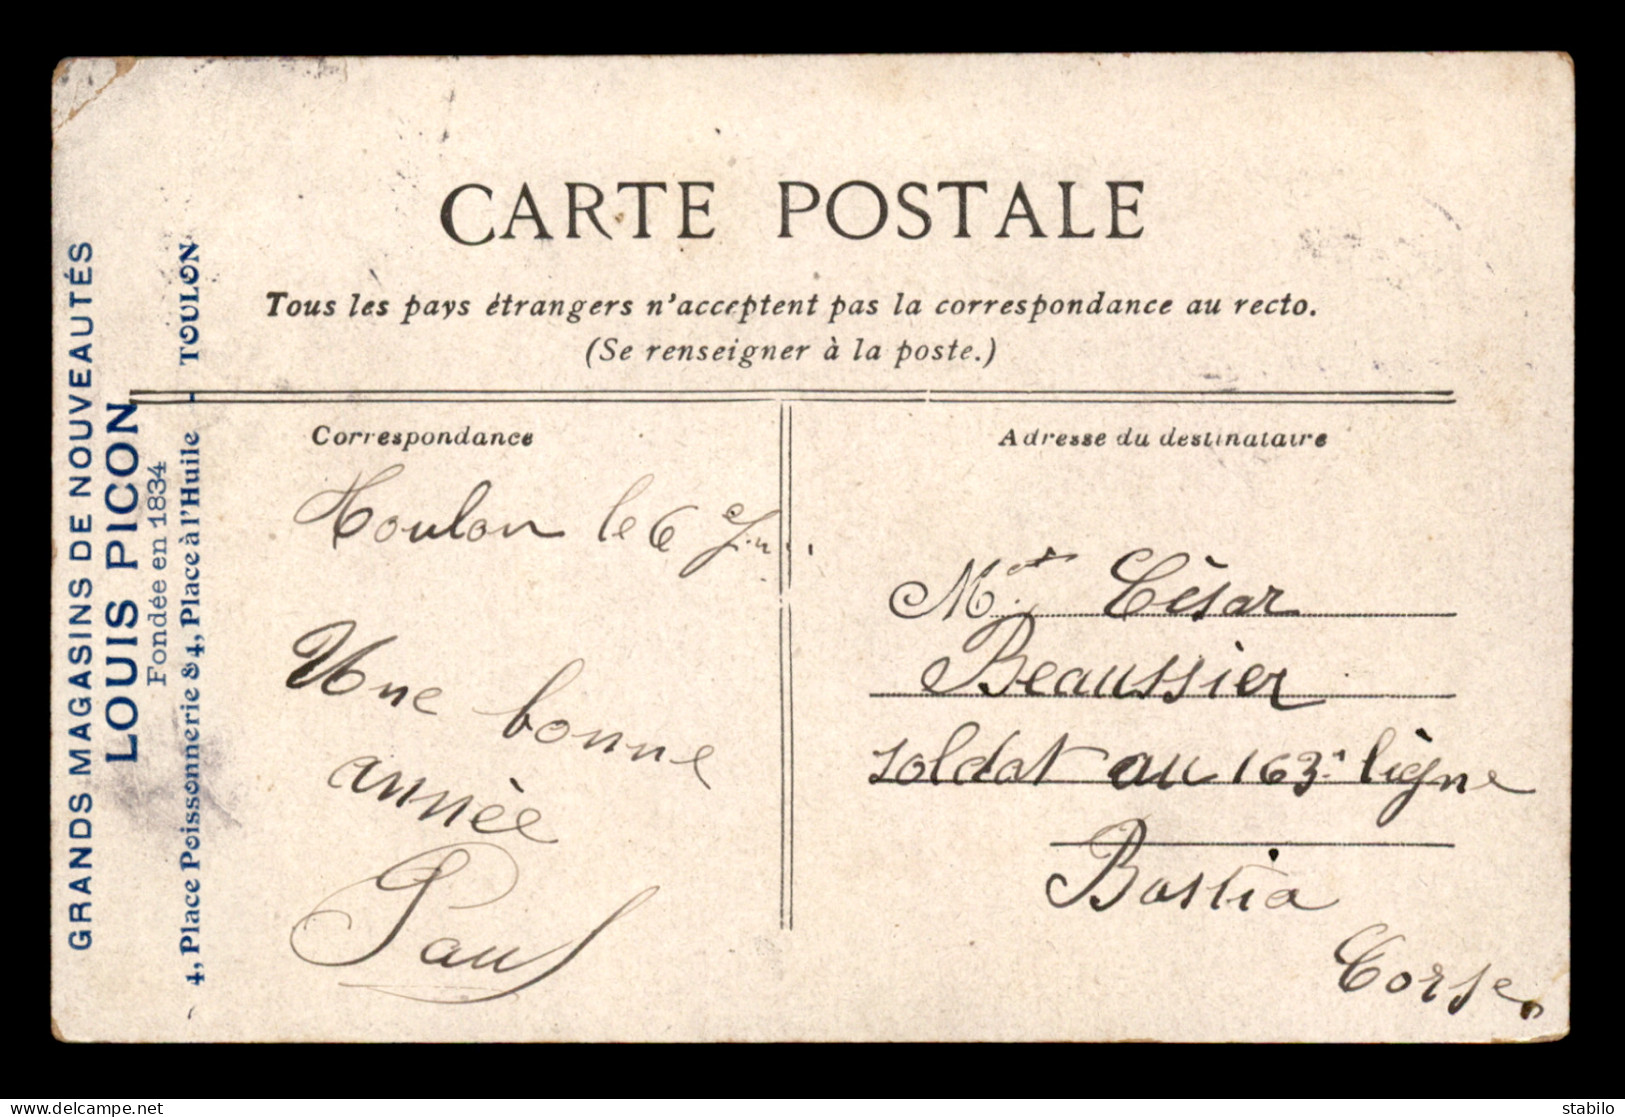 GRANDS MAGASINS DE NOUVEAUTÉS
LOUIS PICON
Fondée en 1834
4, Place Poissonnerie & 4, Place à l'Huile - TOULON
CARTE POSTALE
Tous les pays étrangers n'acceptent pas la correspondance au recto.
(Se renseigner à la poste.)
Correspondance
Toulon le 6
Une bonne
année
Paul
Adresse du destinataire
César
Beaussier
soldat au 163e ligne
Bastia
Corse
delcampe.net
stabilo